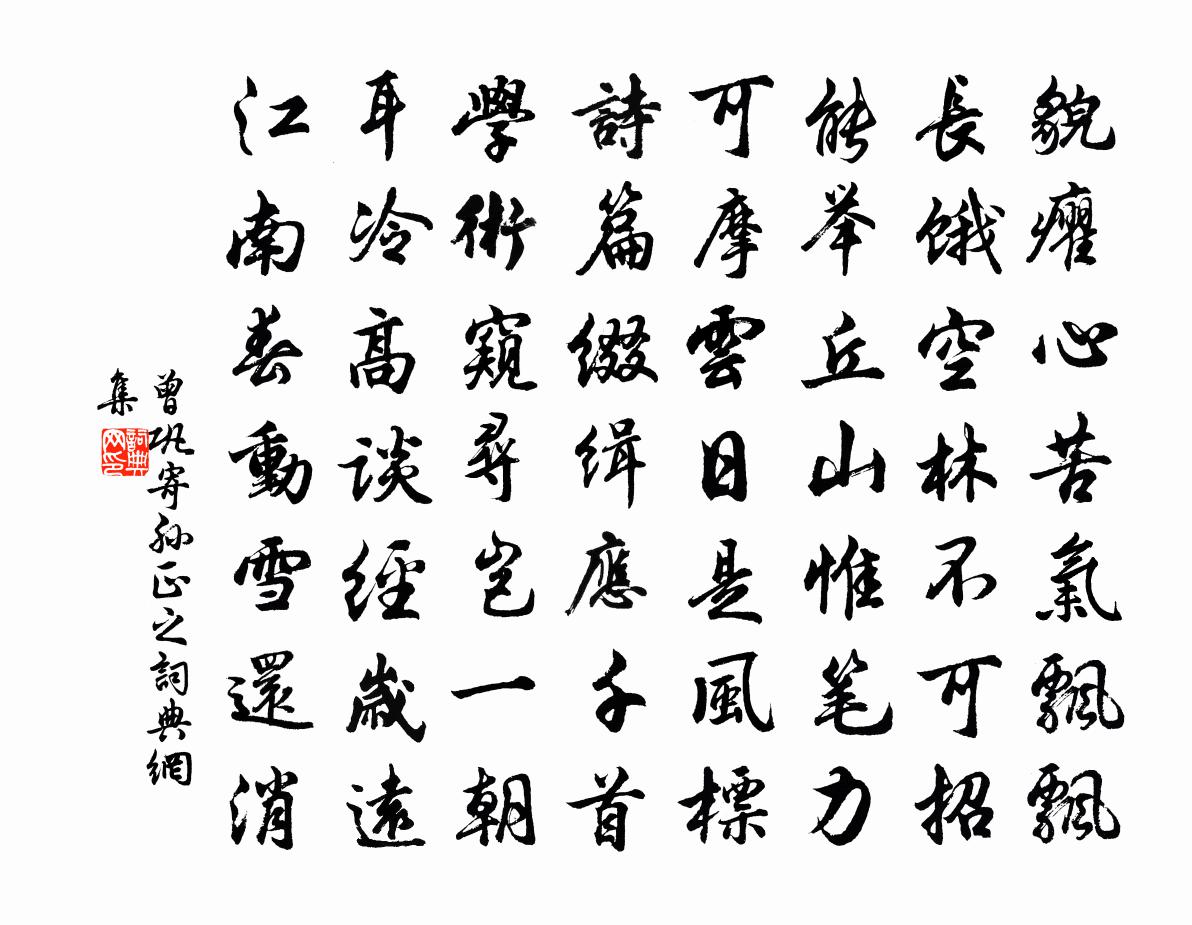 貌癯心苦氣飄飄
長餓空林不可招
能举丘山惟笔力
可摩雲日是風標
詩篇綴緝應千首
學術窺尋豈一朝
耳冷高談經歲遠
江南春動雪還消
曾巩寄孙正之詞典網
集
詞典
网印